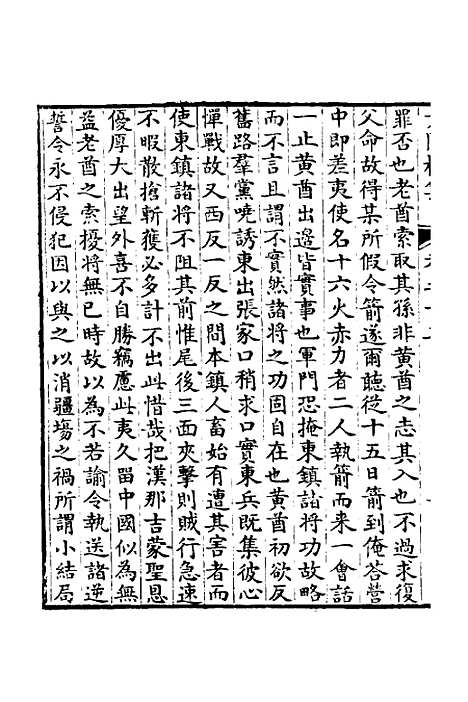 罪否也老酋索取其孫非黃酋之志其入也不過求復
父命故得某所假令箭遂爾聽從十五日箭到俺答營
中即差夷使名十六火赤力者二人執箭而来一會話
一止黃酋出邊皆實事也軍門恐掩東鎮諸將功故略
而不言且謂不實然諸將之功固自在也黃酋初欲反
舊路羣黨嘵誘東出張家口稍求口實東兵既集彼心
憚戰故又西反一反之間本鎮人畜始有遭其害者而
使東鎮諸將不阻其前惟尾後三面夾擊則賊行急速
不暇散搶斬獲必多計不出此惜哉把漢那吉蒙聖恩
優厚大出望外喜不自勝竊慮此夷久畱中國似為無
益老酋之索擾將無已時故以為不若諭令執送諸逆
誓令永不侵犯因以與之以消疆場之禍所謂小結局